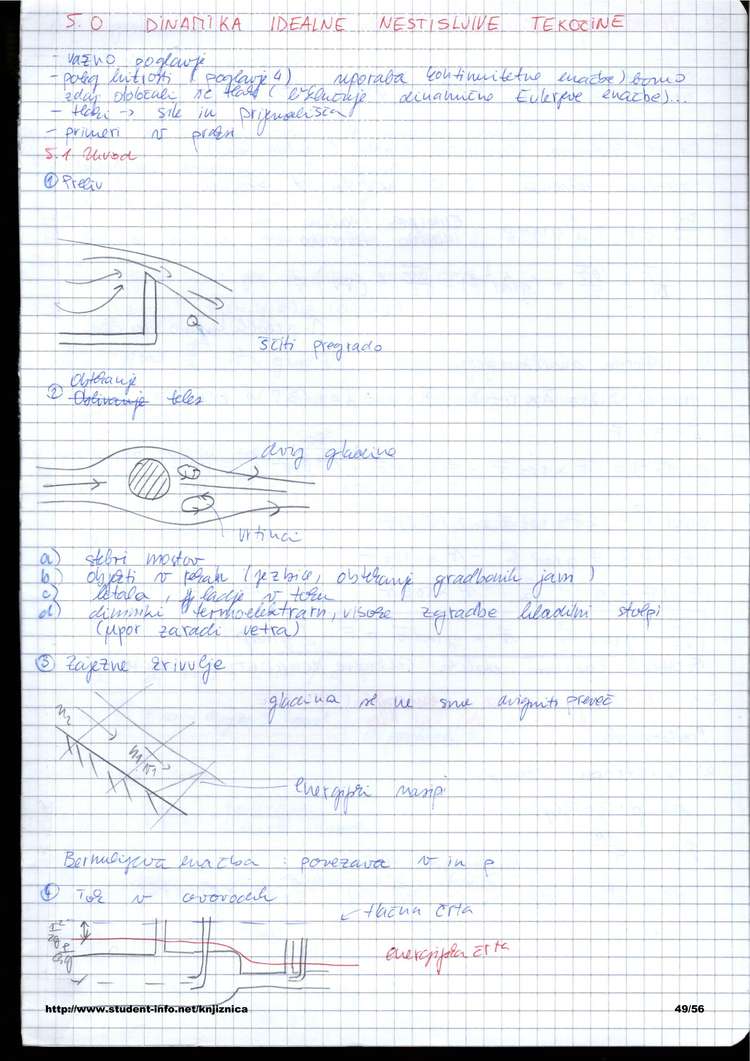 5.0 DINAMIKA IDEALNE NESTISLJIVE TEKOČINE
- važno poglavje
- poleg hitrosti (poglavje 4) uporaba kontinuitetne enačbe) bomo
zdaj obločali se tlake (vključuje dinamične Eulerjeve enačbe)...
- tlaki → sile in prijemališča
- primeri v praksi
5.1 Uvod
① Preliv
Q
ščiti pregrado
Obtekanje
② teles
dvig gladine
vrtinci
a) stebri mostov
b) objekti v rekah (jezbice, obtekanje gradbenih jam)
c) letala, ladje v toku
d) dimniki termoelektrarn, visoke zgradbe hladilni stolpi
(upor zaradi vetra)
③ Zajezne krivulje
gladina se ne sme dvigniti preveč
h2
h1/v1
nasipi
Bernulijeva enačba : povezava v in p
④ Tok v cevovodih
tlačna črta
energijska črta
http://www.student-info.net/knjiznica
49/56